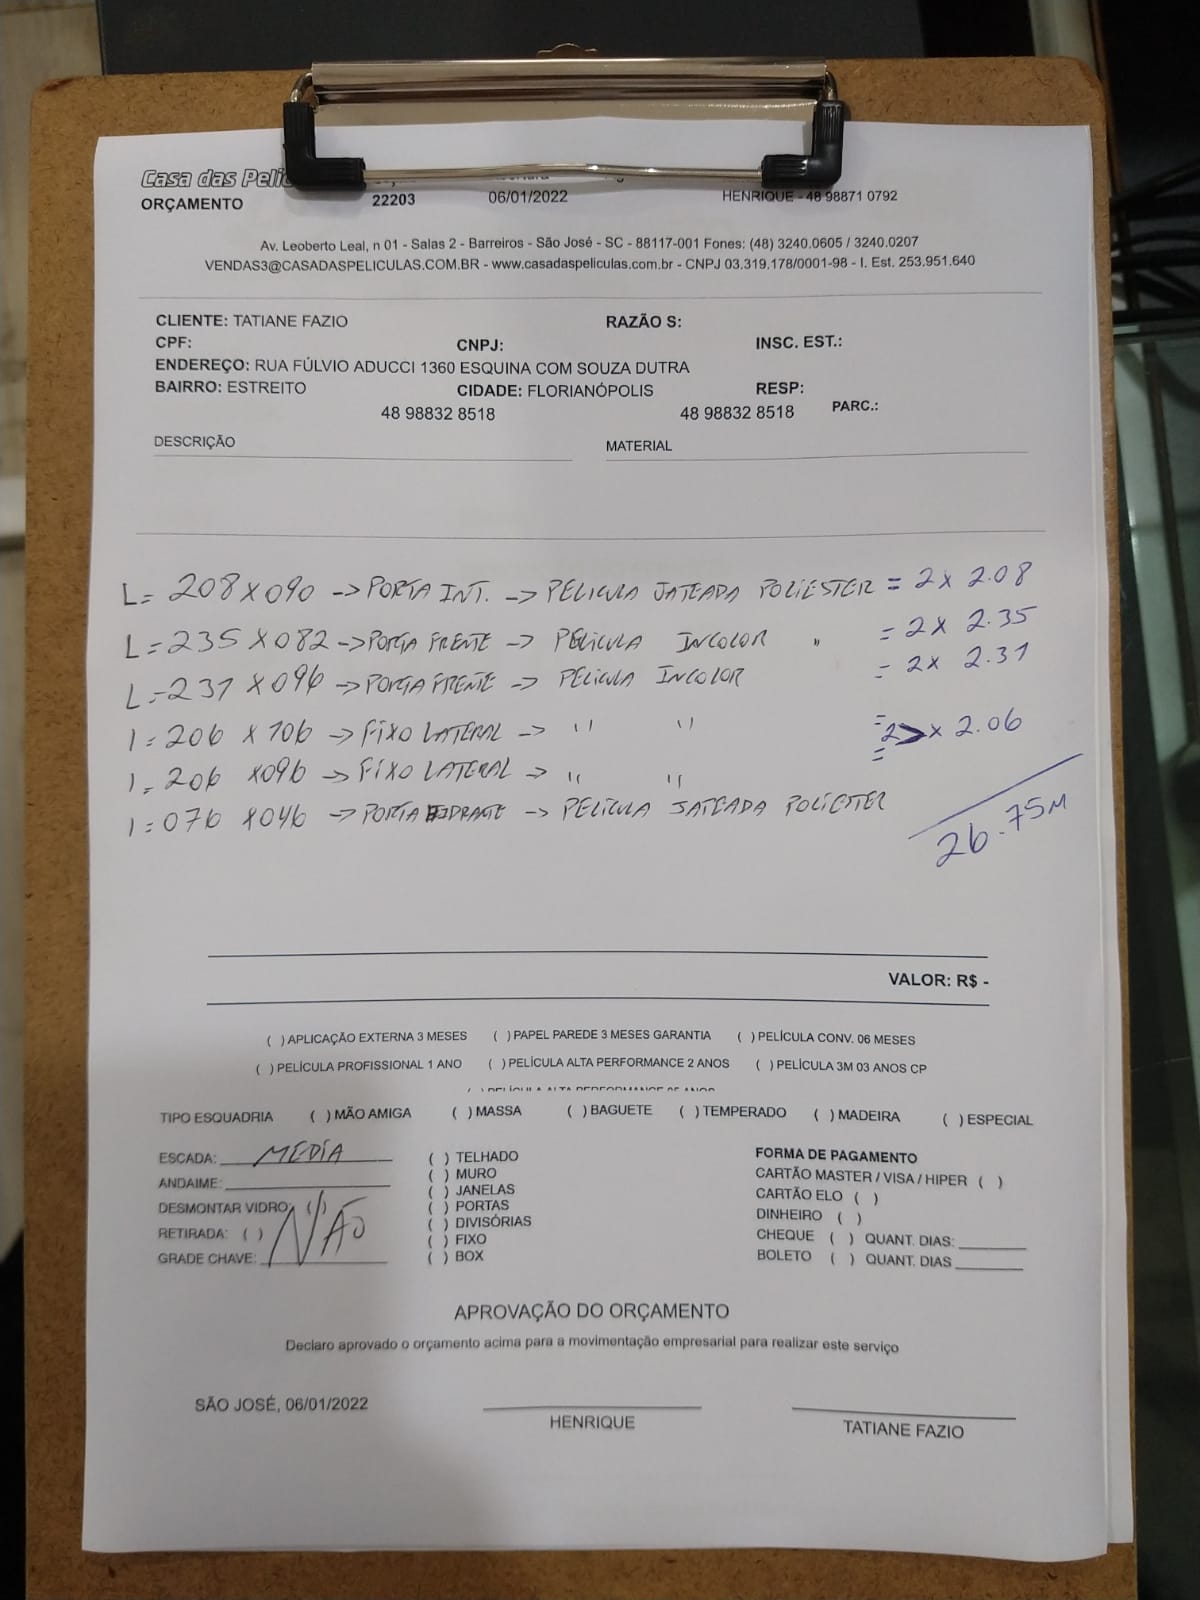 Casa das Pelic
ORÇAMENTO 22203 06/01/2022 HENRIQUE - 48 98871 0792
Av. Leoberto Leal, n 01 - Salas 2 - Barreiros - São José - SC - 88117-001 Fones: (48) 3240.0605 / 3240.0207
VENDAS3@CASADASPELICULAS.COM.BR - www.casadaspeliculas.com.br - CNPJ 03.319.178/0001-98 - I. Est. 253.951.640
CLIENTE: TATIANE FAZIO RAZÃO S:
CPF: CNPJ: INSC. EST.:
ENDEREÇO: RUA FÚLVIO ADUCCI 1360 ESQUINA COM SOUZA DUTRA
BAIRRO: ESTREITO CIDADE: FLORIANÓPOLIS RESP:
48 98832 8518 48 98832 8518 PARC.:
DESCRIÇÃO MATERIAL
L= 208 X 090 -> PORTA INT. -> PELICULA JATEADA POLIESTER = 2 X 2.08
L= 235 X 082 -> PORTA FRENTE -> PELICULA INCOLOR " = 2 X 2.35
L= 231 X 096 -> PORTA FRENTE -> PELICULA INCOLOR = 2 X 2.31
1= 206 X 106 -> FIXO LATERAL -> " " = 2 > X 2.06
1= 206 X 096 -> FIXO LATERAL -> " " =
1= 076 X 046 -> PORTA HIDRANTE -> PELICULA JATEADA POLIESTER
26.75M
VALOR: R$ -
( ) APLICAÇÃO EXTERNA 3 MESES ( ) PAPEL PAREDE 3 MESES GARANTIA ( ) PELÍCULA CONV. 06 MESES
( ) PELÍCULA PROFISSIONAL 1 ANO ( ) PELÍCULA ALTA PERFORMANCE 2 ANOS ( ) PELÍCULA 3M 03 ANOS CP
( ) PELÍCULA ALTA PERFORMANCE 05 ANOS
TIPO ESQUADRIA ( ) MÃO AMIGA ( ) MASSA ( ) BAGUETE ( ) TEMPERADO ( ) MADEIRA ( ) ESPECIAL
ESCADA: MEDIA ( ) TELHADO FORMA DE PAGAMENTO
( ) MURO CARTÃO MASTER / VISA / HIPER ( )
ANDAIME: ( ) JANELAS CARTÃO ELO ( )
DESMONTAR VIDRO: ( ) ( ) PORTAS DINHEIRO ( )
RETIRADA: ( ) NÃO ( ) DIVISÓRIAS CHEQUE ( ) QUANT. DIAS:
( ) FIXO BOLETO ( ) QUANT. DIAS
GRADE CHAVE: ( ) BOX
APROVAÇÃO DO ORÇAMENTO
Declaro aprovado o orçamento acima para a movimentação empresarial para realizar este serviço
SÃO JOSÉ, 06/01/2022
HENRIQUE TATIANE FAZIO